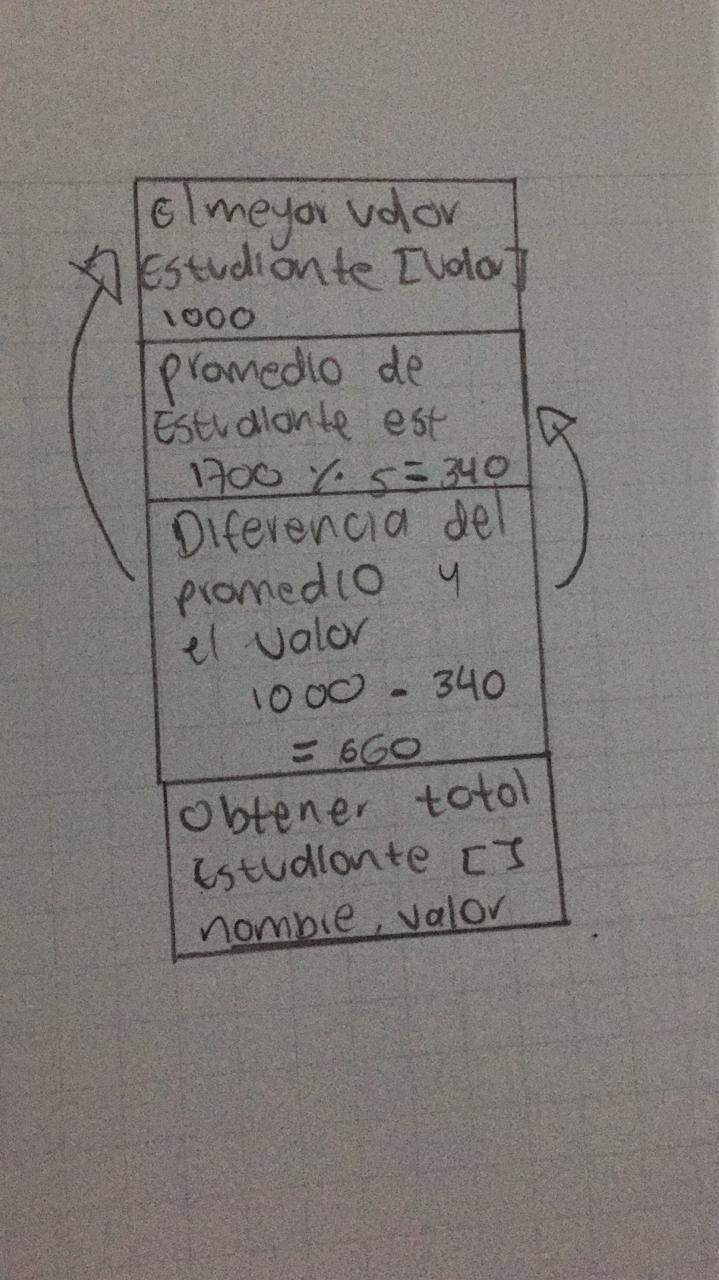 El meyor valor
Estudiante [valor]
1000
promedio de
Estudiante est
1700 % 5 = 340
Diferencia del
promedio y
el valor
1000 - 340
= 660
Obtener total
Estudiante []
nombre, valor